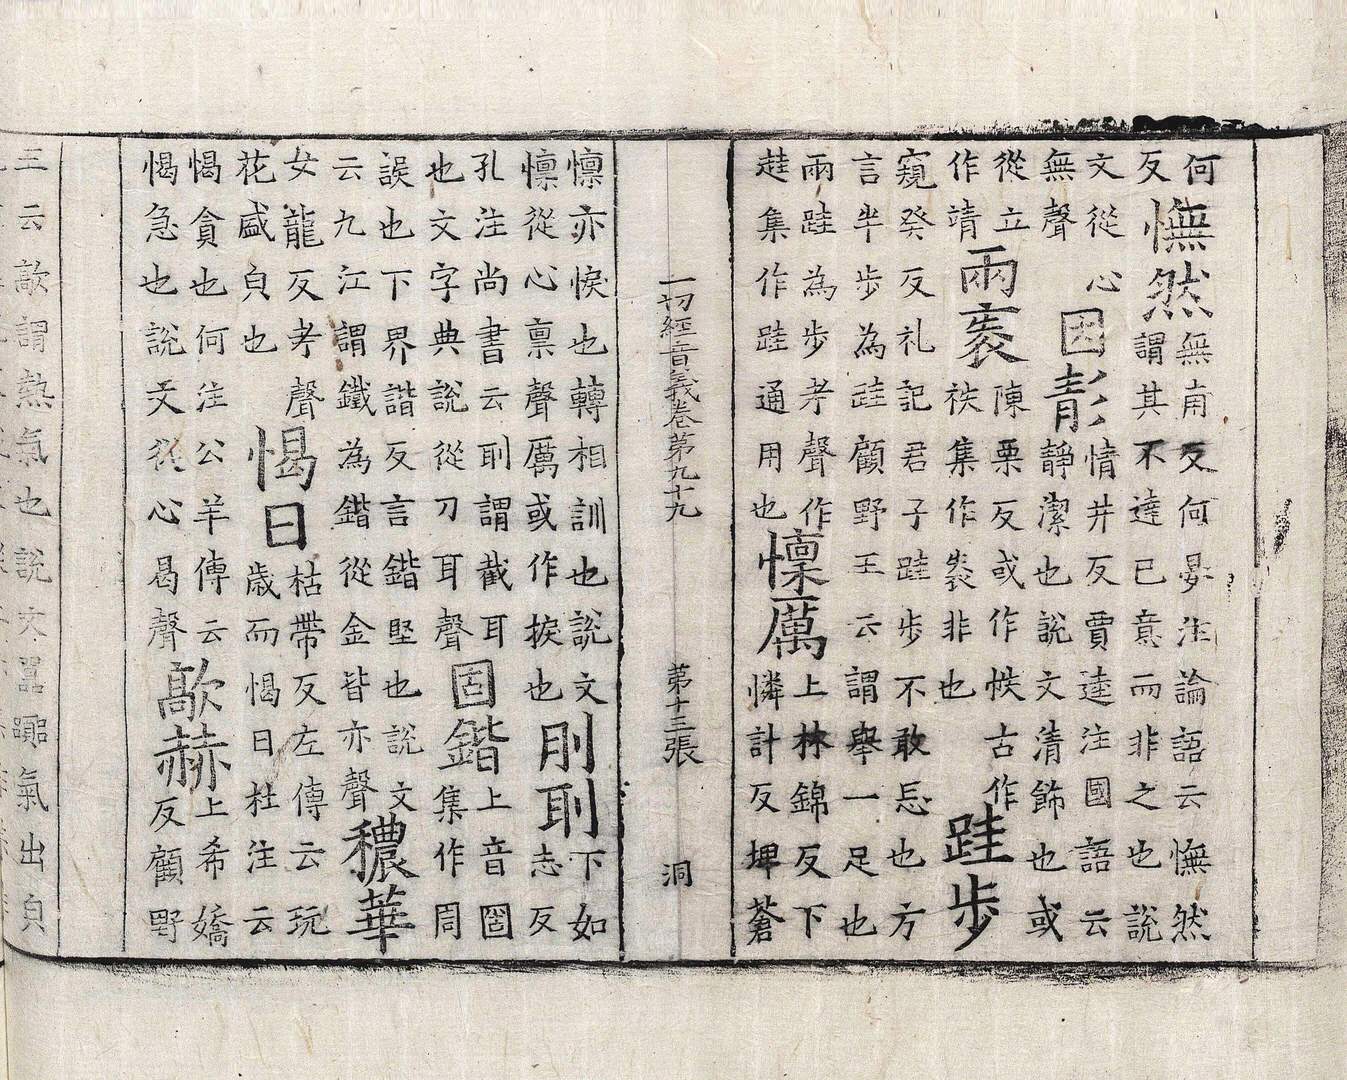 何反憮然無甫反何晏注論語云憮然謂其不達己意而非之也說
文從心無聲因㣋情井反賈逵注國語云靜潔也說文清飾也或
從立作靖兩袠陳栗反或作帙古作袟集作袠非也跬步
窺癸反礼記君子跬步不敢忘也方言半步為跬顧野王云謂舉一足也
兩跬為步考聲作趌集作跬通用也懍厲上林錦反下憐計反埤蒼
一切經音義卷第九十九 第十三張 洞
懍亦悷也轉相訓也說文懍從心禀聲厲或作捩也刖刵下如志反
孔注尚書云刵謂截耳也文字典說從刀耳聲固鍇上音固集作周
誤也下界諧反言鍇堅也說文云九江謂鐵為鍇從金皆亦聲穠華
女龍反考聲花盛皃也愒日枯帶反左傳云玩歲而愒日杜注云
愒貪也何注公羊傳云愒急也說文從心曷聲歊赫上希嬌反顧野
云歊謂熱氣也說文氣出皃